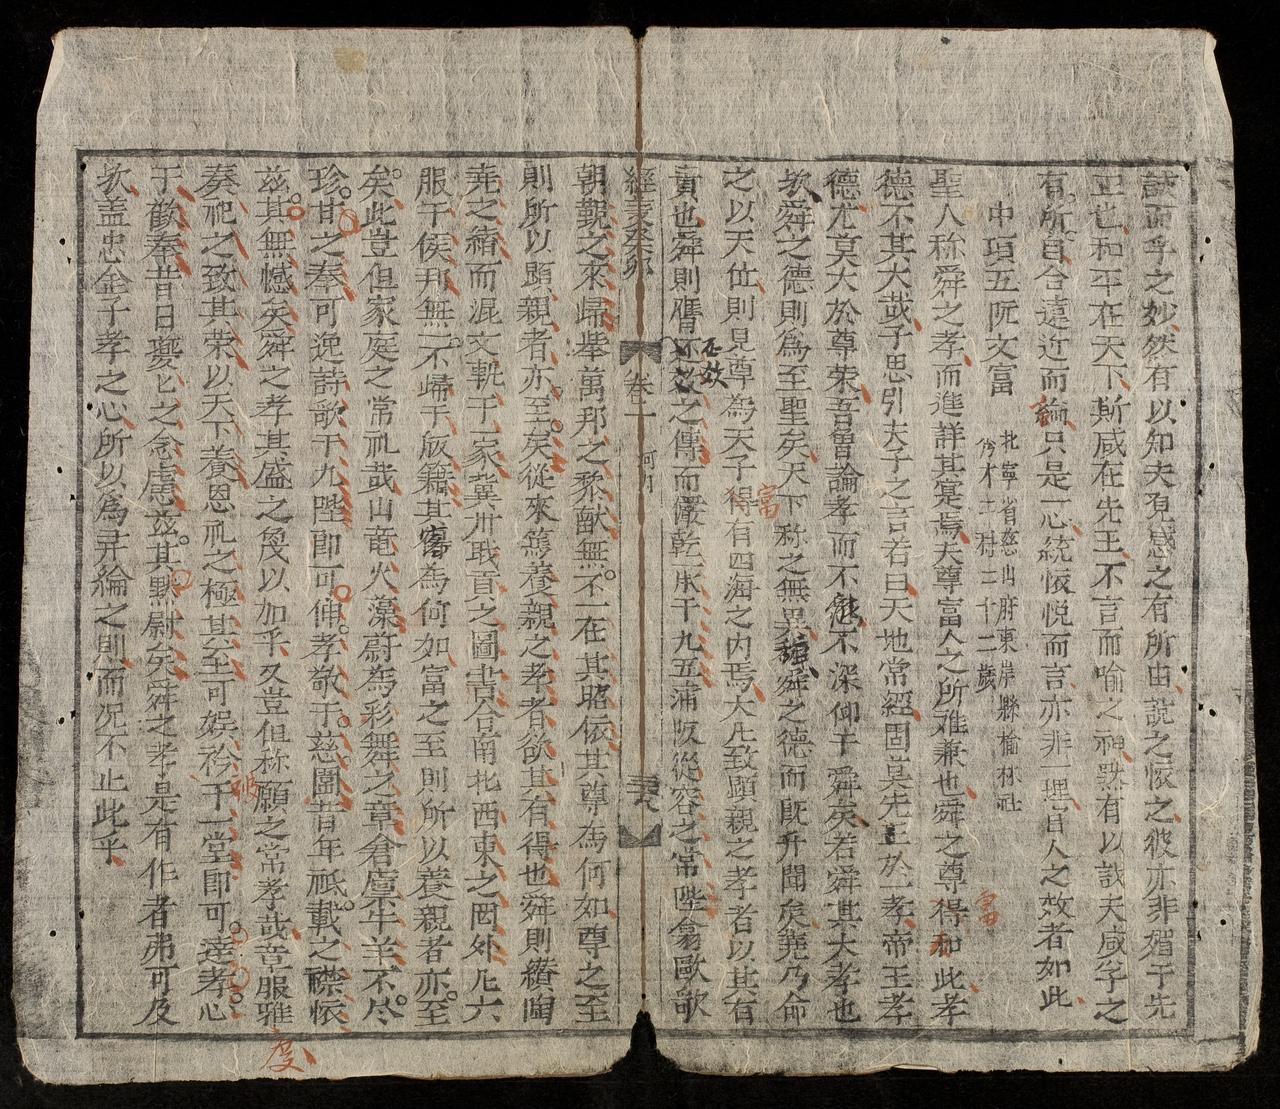 誠而孚之妙然有以知夫有感之有所由說之懷之彼亦非有于先
正也和平在天下斯咸在先王不言而喻之神默有以哉天咸孚之
有所自合遠近而論只是一心統懷悦而言亦非一理聖人之效者如此
中項五阮文富
北寧省慈山府東岸縣榆林社
矜木工村二十二歲
聖人称舜之孝而進詳其寔焉夫尊富人之所难兼也舜之尊得和此孝
德不其大哉子思引夫子之言若曰天地常經固莫先王於孝帝王孝
德尤莫大於尊荣吾曾論孝而不能不深仰于舜矣若舜其大孝也
欤舜之德則為至聖矣天下称之無異舜之德而既升聞矣堯乃命
之以天位則見尊為天子得有四海之内焉大凡致顕親之孝者以其有
責也舜則膺之傳而儼乾一成于九五蒲坂從容之常陛翕歐歌
不效
富
富
經義癸卯
卷一
河内
朝覲之來歸挙萬邦之黎献無不一在其昭依其尊為何如尊之至
則所以顕親者亦至矣從來篤養親之孝者欲其有得也舜則纉陶
尭之緒而混文軌于一家冀州取首之圖書合南北西東之囿外凡六
服千侯邦無一不歸于版籍其富為何如富之至則所以養親者亦至
矣此豈但家庭之常礼哉山竜火藻蔚為彩舞之章倉廩牛羊不尽
珍甘之奉可逸詩歌于九陛即可伸孝敬于慈圍昔年祇載之襟懐
兹其無憾矣舜之孝其盛之蔑以加乎又豈但称願之常孝哉章服雅
奏祀之致其荣以天下養恩礼之極其至可娱衿于一堂即可達孝心
于歡奉昔日夔匕之念慮兹其黙尉矣舜之孝是有作者弗可及
欤盖忠全子孝之心所以為昇綸之則而况不止此乎
度